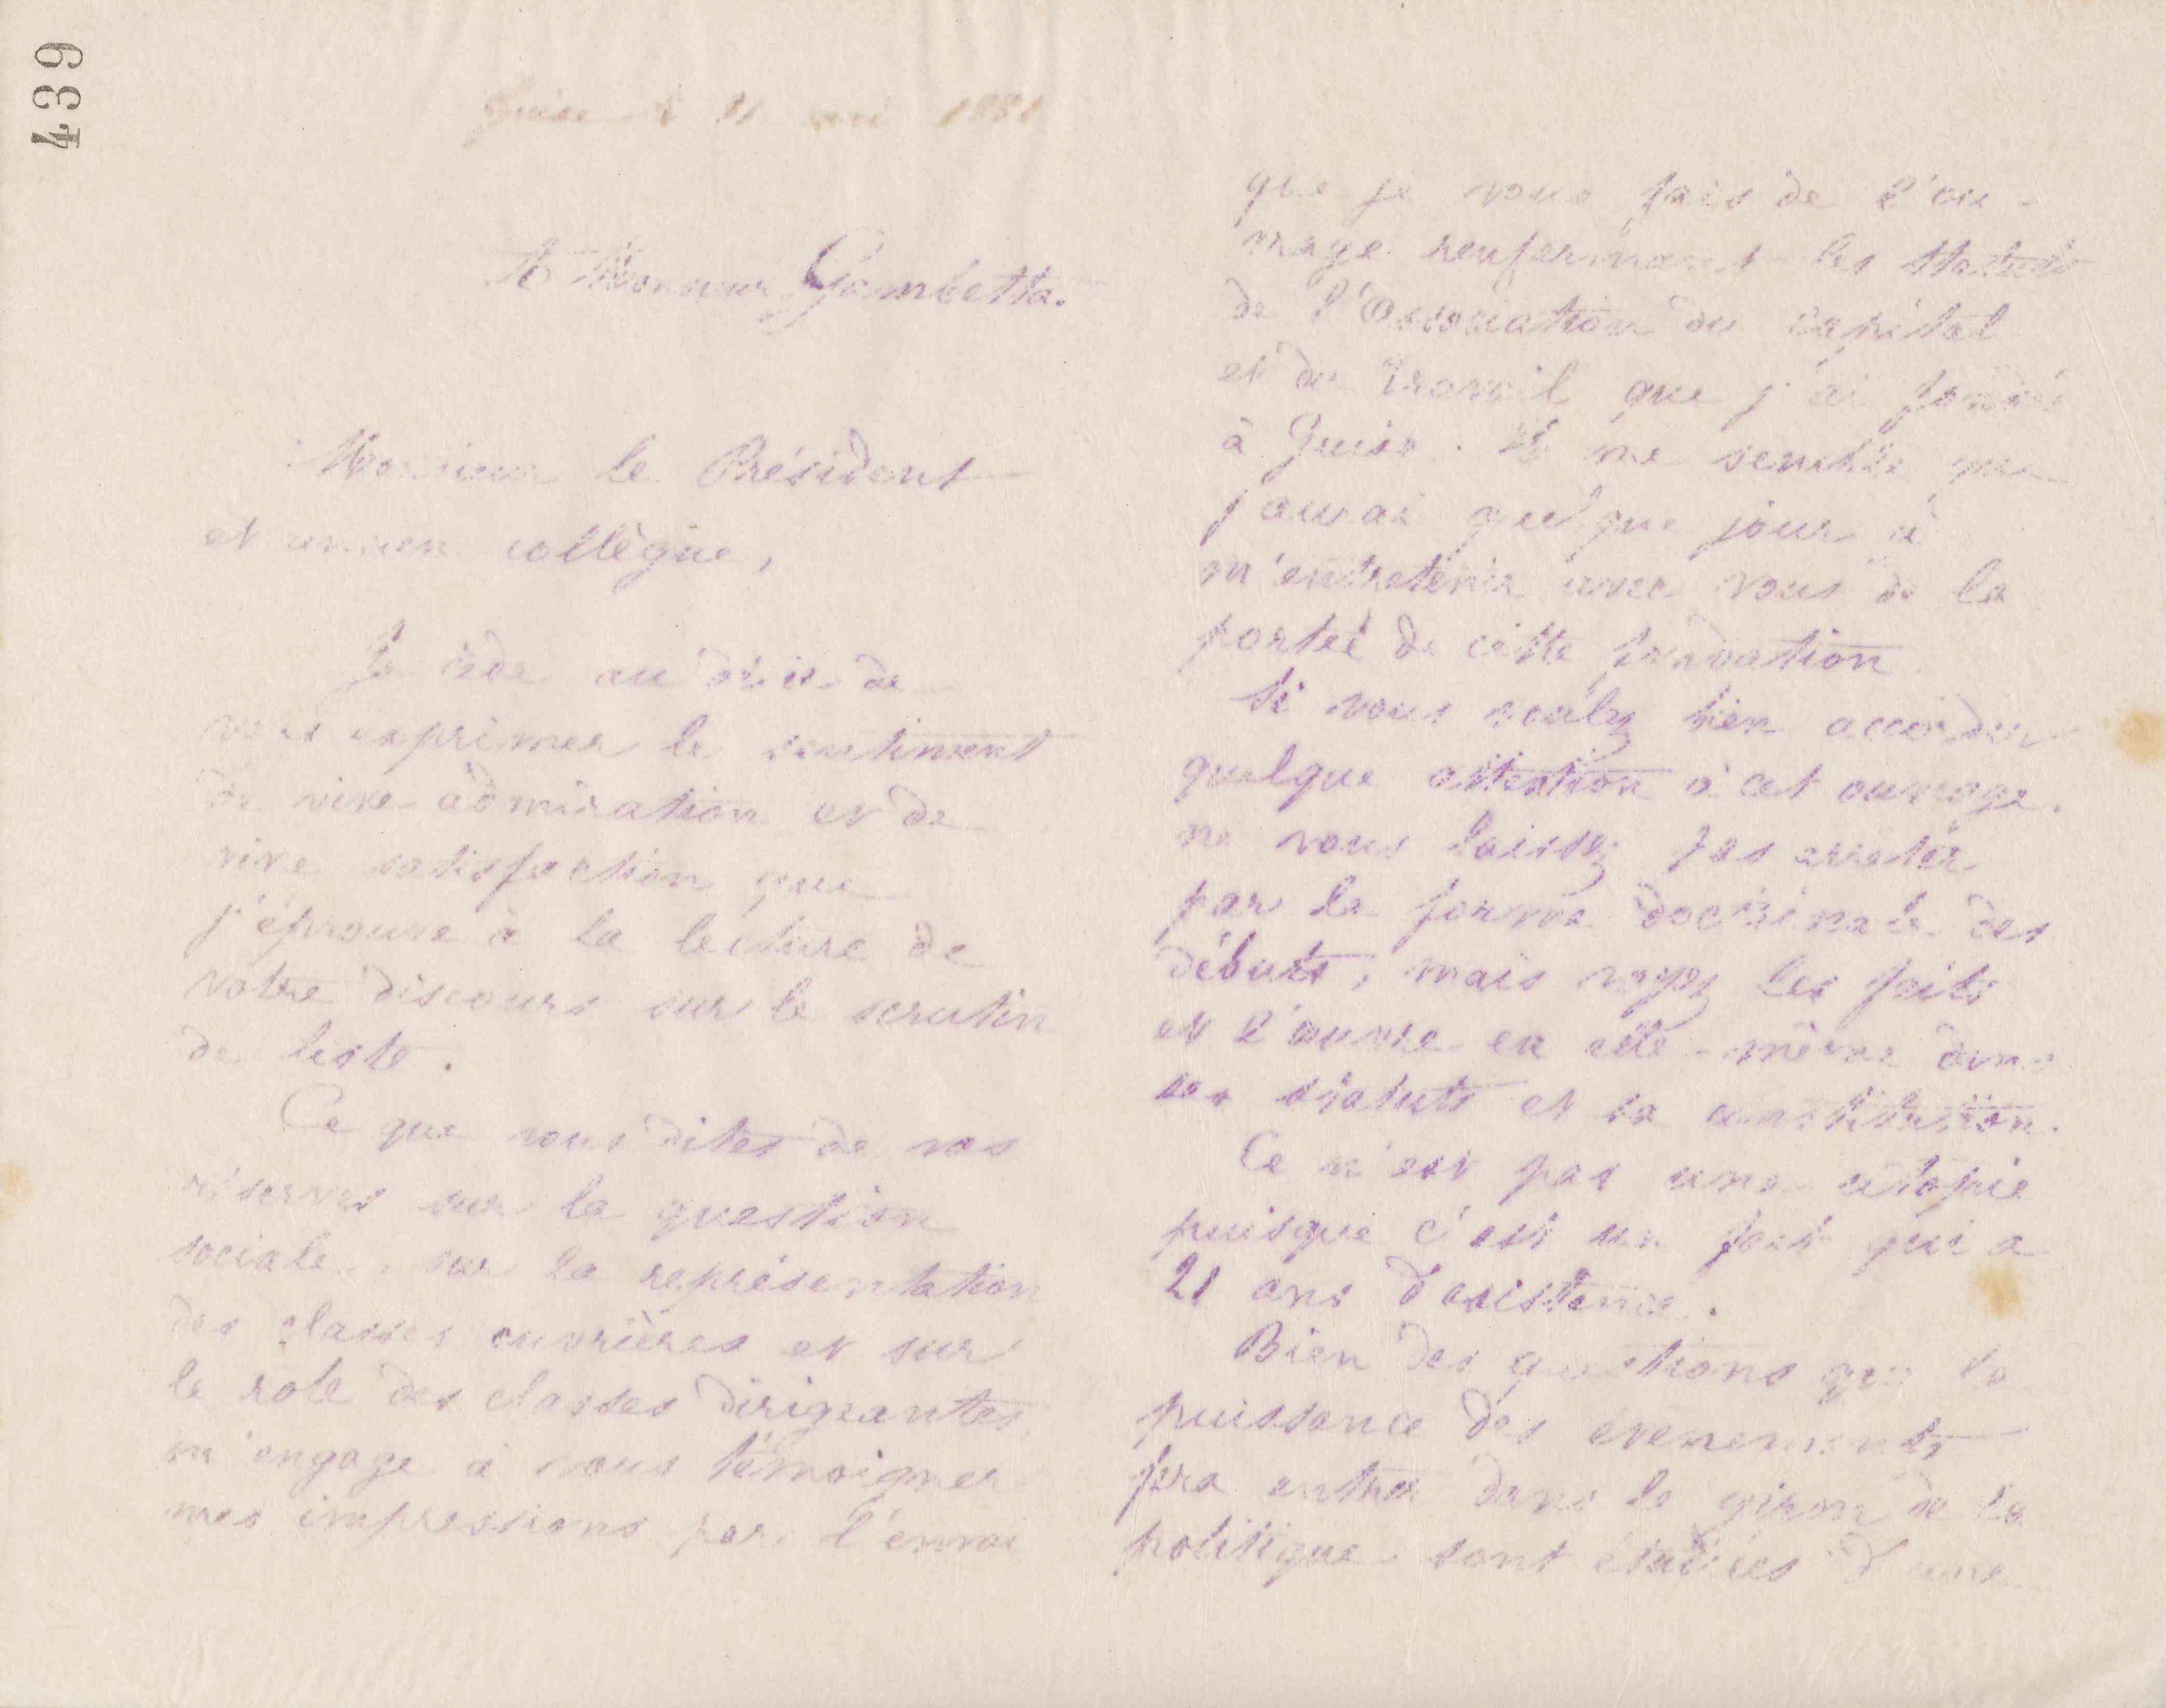 439
Guise le 21 mai 1881
A Monsieur Gambetta.
Monsieur le Président
et ancien collègue,
Je cède au désir de
vous exprimer le sentiment
de vive admiration et de
vive satisfaction que
j'éprouve à la lecture de
votre discours sur le scrutin
de liste.
Ce que vous dites de vos
réserves sur la question
sociale, sur la représentation
des classes ouvrières et sur
le role des classes dirigeantes,
m'engage à vous témoigner
mes impressions par l'envoi
que je vous fais de l'ou-
vrage renfermant les Statuts
de l'Association du capital
et du travail que j'ai fondée
à Guise. Il me semble que
j'aurai quelque jour à
m'entretenir avec vous de la
porteé de cette fondation
Si vous voulez bien accorder
quelque attention à cet ouvrage,
ne vous laissez pas arrêter
par la forme doctrinale des
débuts, mais voyez les faits
et l'œuvre en elle-même dans
ses statuts et sa constitution.
Ce n'est pas une utopie
puisque c'est un fait qui a
21 ans d'existence.
Bien des questions que la
puissance des évènements
fera entrer dans le giron de la
politique sont étudiées d'une